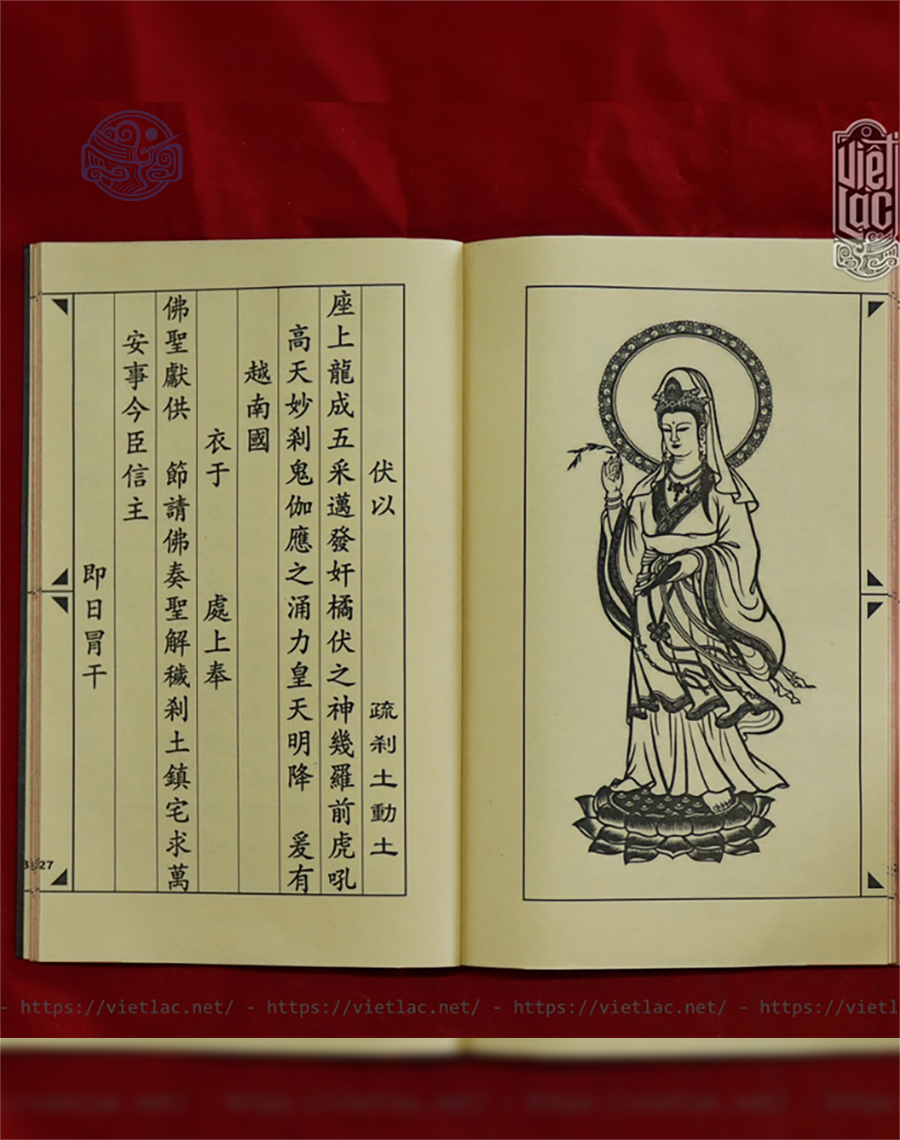 Việt
Lạc
伏以 疏刹土動土
座上龍成五采邁發奸橘伏之神幾羅前虎吼
高天妙刹鬼伽應之涌力皇天明降 爰有
越南國
衣于 處上奉
佛聖獻供 節請佛奏聖解穢刹土鎮宅求萬
安事今臣信主
即日冐干
27
- https://vietlac.net/ - https://vietlac.net/ - https://vietlac.net/ - https://vietlac.net/